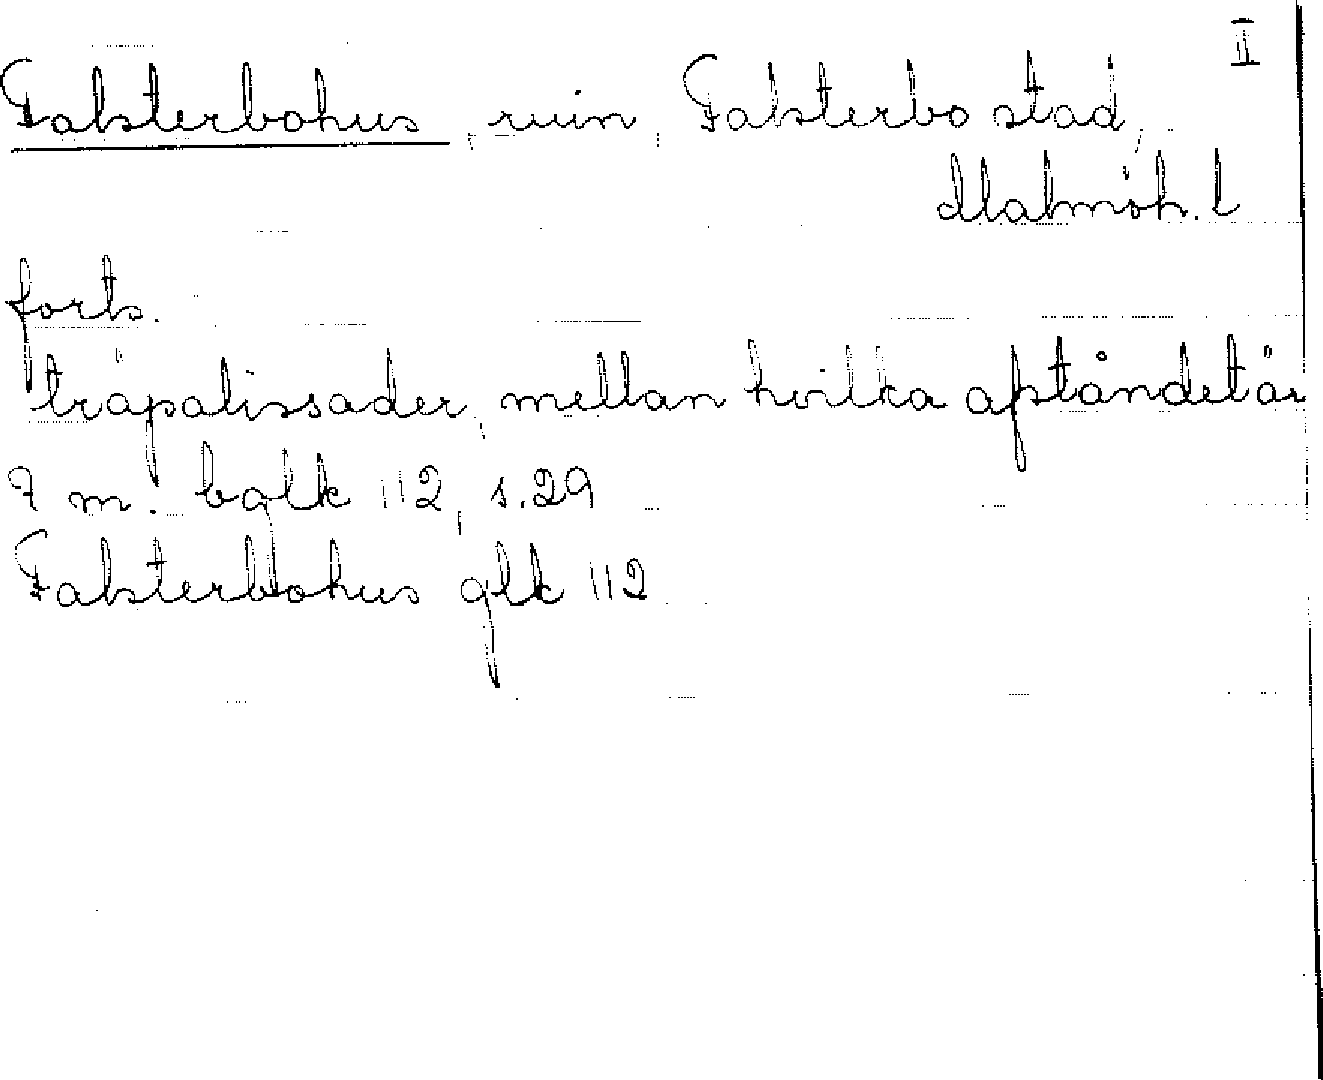 II
Falsterbohus, ruin, Falsterbo stad,
Malmöh. l
forts.
träpalissader, mellan hvilka afståndet är
7 m. bglk 112, s. 29
Falsterbohus glk 112